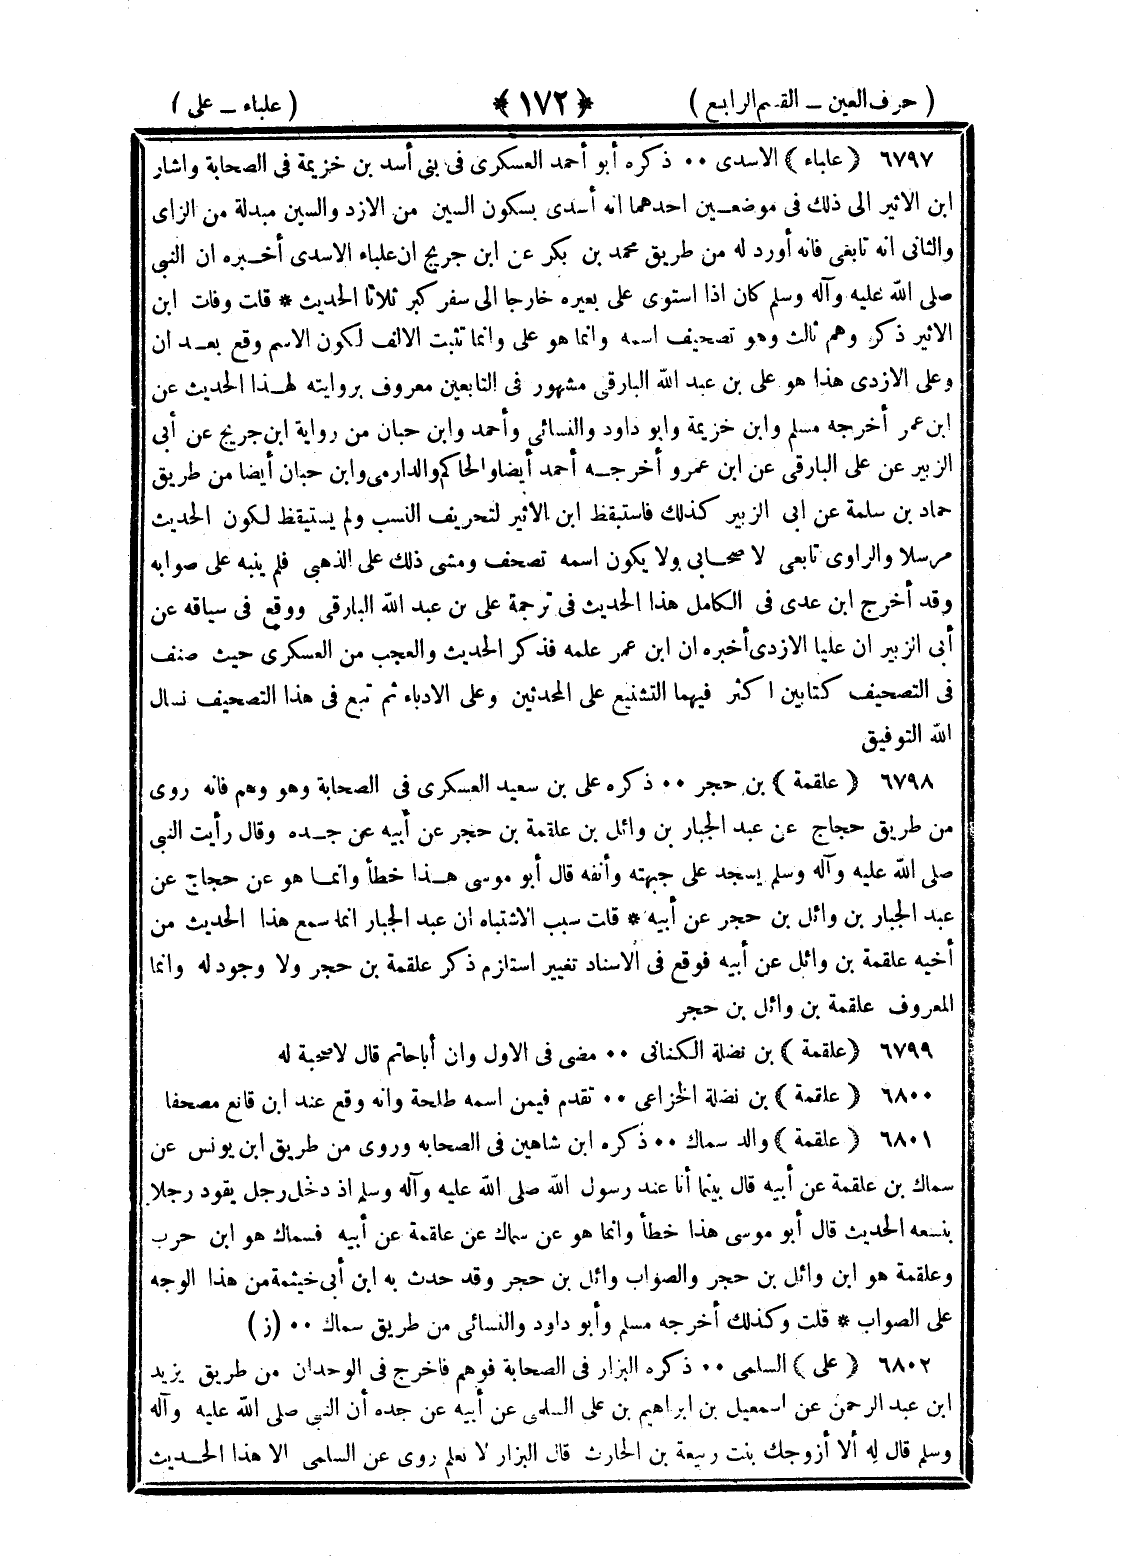 ( حرف العين ــ القسم الرابع ) ﴿ ١٧٢ ﴾ ( علباء ــ على )
٦٧٩٧ ( علباء ) الاسدى ٠٠ ذكره أبو أحمد العسكرى فى بنى أسد بن خزيمة فى الصحابة واشار
ابن الاثير الى ذلك فى موضعين احدهما انه أسدى بسكون السين من الازد والسين مبدلة من الزاى
والثانى انه تابعى فانه أورد له من طريق محمد بن بكر عن ابن جريج ان علباء الاسدى أخبره ان النبى
صلى الله عليه وآله وسلم كان اذا استوى على بعيره خارجا الى سفر كبر ثلاثا الحديث * قلت وفات ابن
الاثير ذكر وهم ثالث وهو تصحيف اسمه وانما هو على وانما تثبت الالف لكون الاسم وقع بعد ان
وعلى الازدى هذا هو على بن عبد الله البارقى مشهور فى التابعين معروف بروايته لهذا الحديث عن
ابن عمر أخرجه مسلم وابن خزيمة وابو داود والنسائى وأحمد وابن حبان من رواية ابن جريج عن أبى
الزبير عن على البارقى عن ابن عمرو أخرجه أحمد أيضاوالحاكم والدارمى وابن حبان أيضا من طريق
حماد بن سلمة عن ابى الزبير كذلك فاستيقظ ابن الاثير لتحريف النسب ولم يستيقظ لكون الحديث
مرسلا والراوى تابعى لا صحابى ولا يكون اسمه تصحف ومشى ذلك على الذهبى فلم ينبه على صوابه
وقد أخرج ابن عدى فى الكامل هذا الحديث فى ترجمة على بن عبد الله البارقى ووقع فى سياقه عن
أبى الزبير ان عليا الازدى أخبره ان ابن عمر علمه فذكر الحديث والعجب من العسكرى حيث صنف
فى التصحيف كتابين اكثر فيهما التشنيع على المحدثين وعلى الادباء ثم تبع فى هذا التصحيف نسال
الله التوفيق
٦٧٩٨ ( علقمة ) بن حجر ٠٠ ذكره على بن سعيد العسكرى فى الصحابة وهو وهم فانه روى
من طريق حجاج عن عبد الجبار بن وائل بن علقمة بن حجر عن أبيه عن جده وقال رأيت النبى
صلى الله عليه وآله وسلم يسجد على جبهته وأنفه قال أبو موسى هذا خطأ وانما هو عن حجاج عن
عبد الجبار بن وائل بن حجر عن أبيه * قلت سبب الاشتباه ان عبد الجبار انما سمع هذا الحديث من
أخيه علقمة بن وائل عن أبيه فوقع فى الاسناد تغيير استلزم ذكر علقمة بن حجر ولا وجود له وانما
المعروف علقمة بن وائل بن حجر
٦٧٩٩ ( علقمة ) بن نضلة الكنانى ٠٠ مضى فى الاول وان أباحاتم قال لاصحبة له
٦٨٠٠ ( علقمة ) بن نضلة الخزاعى ٠٠ تقدم فيمن اسمه طلحة وانه وقع عند ابن قانع مصحفا
٦٨٠١ ( علقمة ) والد سماك ٠٠ ذكره ابن شاهين فى الصحابه وروى من طريق ابن يونس عن
سماك بن علقمة عن أبيه قال بينما أنا عند رسول الله صلى الله عليه وآله وسلم اذ دخل رجل يقود رجلا
بنسعه الحديث قال أبو موسى هذا خطأ وانما هو عن سماك عن علقمة عن أبيه فسماك هو ابن حرب
وعلقمة هو ابن وائل بن حجر والصواب وائل بن حجر وقد حدث به ابن أبى خيثمة من هذا الوجه
على الصواب * قلت وكذلك أخرجه مسلم وأبو داود والنسائى من طريق سماك ٠٠ (ز)
٦٨٠٢ ( على ) السلمى ٠٠ ذكره البزار فى الصحابة فوهم فاخرج فى الوحدان من طريق يزيد
ابن عبد الرحمن عن اسمعيل بن ابراهيم بن على السلمى عن أبيه عن جده أن النبى صلى الله عليه وآله
وسلم قال له ألا أزوجك بنت ربيعة بن الحارث قال البزار لا نعلم روى عن السلمى الا هذا الحديث